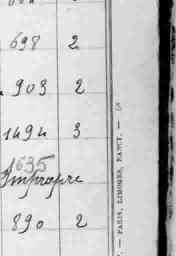 698 2
903 2
1494 3
1635
Impropre
890 2
. — PARIS, LIMOGES, NANCY. —